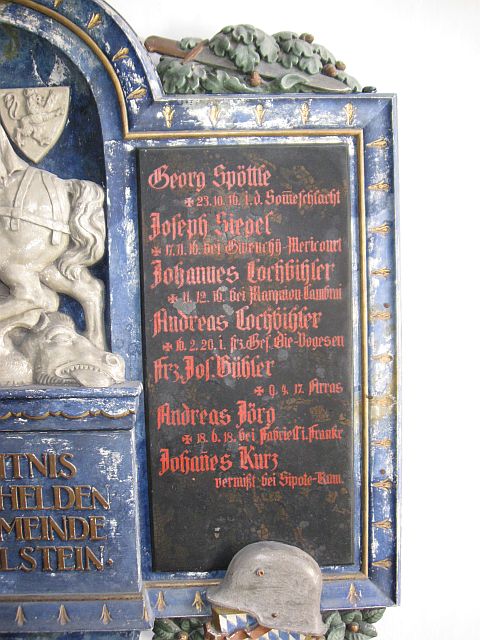 Georg Spöttle
✠ 23.10.16. i. d. Som̅eschlacht
Joseph Siegel
✠ 17.11.16. bei Givenchy-Mericourt
Johannes Lochbihler
✠ 11. 12. 16. bei Cambrai
Andreas Lochbihler
✠ 16. 2. 20. i. frz. Gef. Aie-Vogesen
Frz. Jos. Bühler
✠ 9. 4. 17. Arras
Andreas Jörg
✠ 18. 6. 18. bei i. Frankr.
Johan̅es Kurz
vermißt bei Sipote-Rum.
TNIS
HELDEN
MEINDE
LSTEIN.